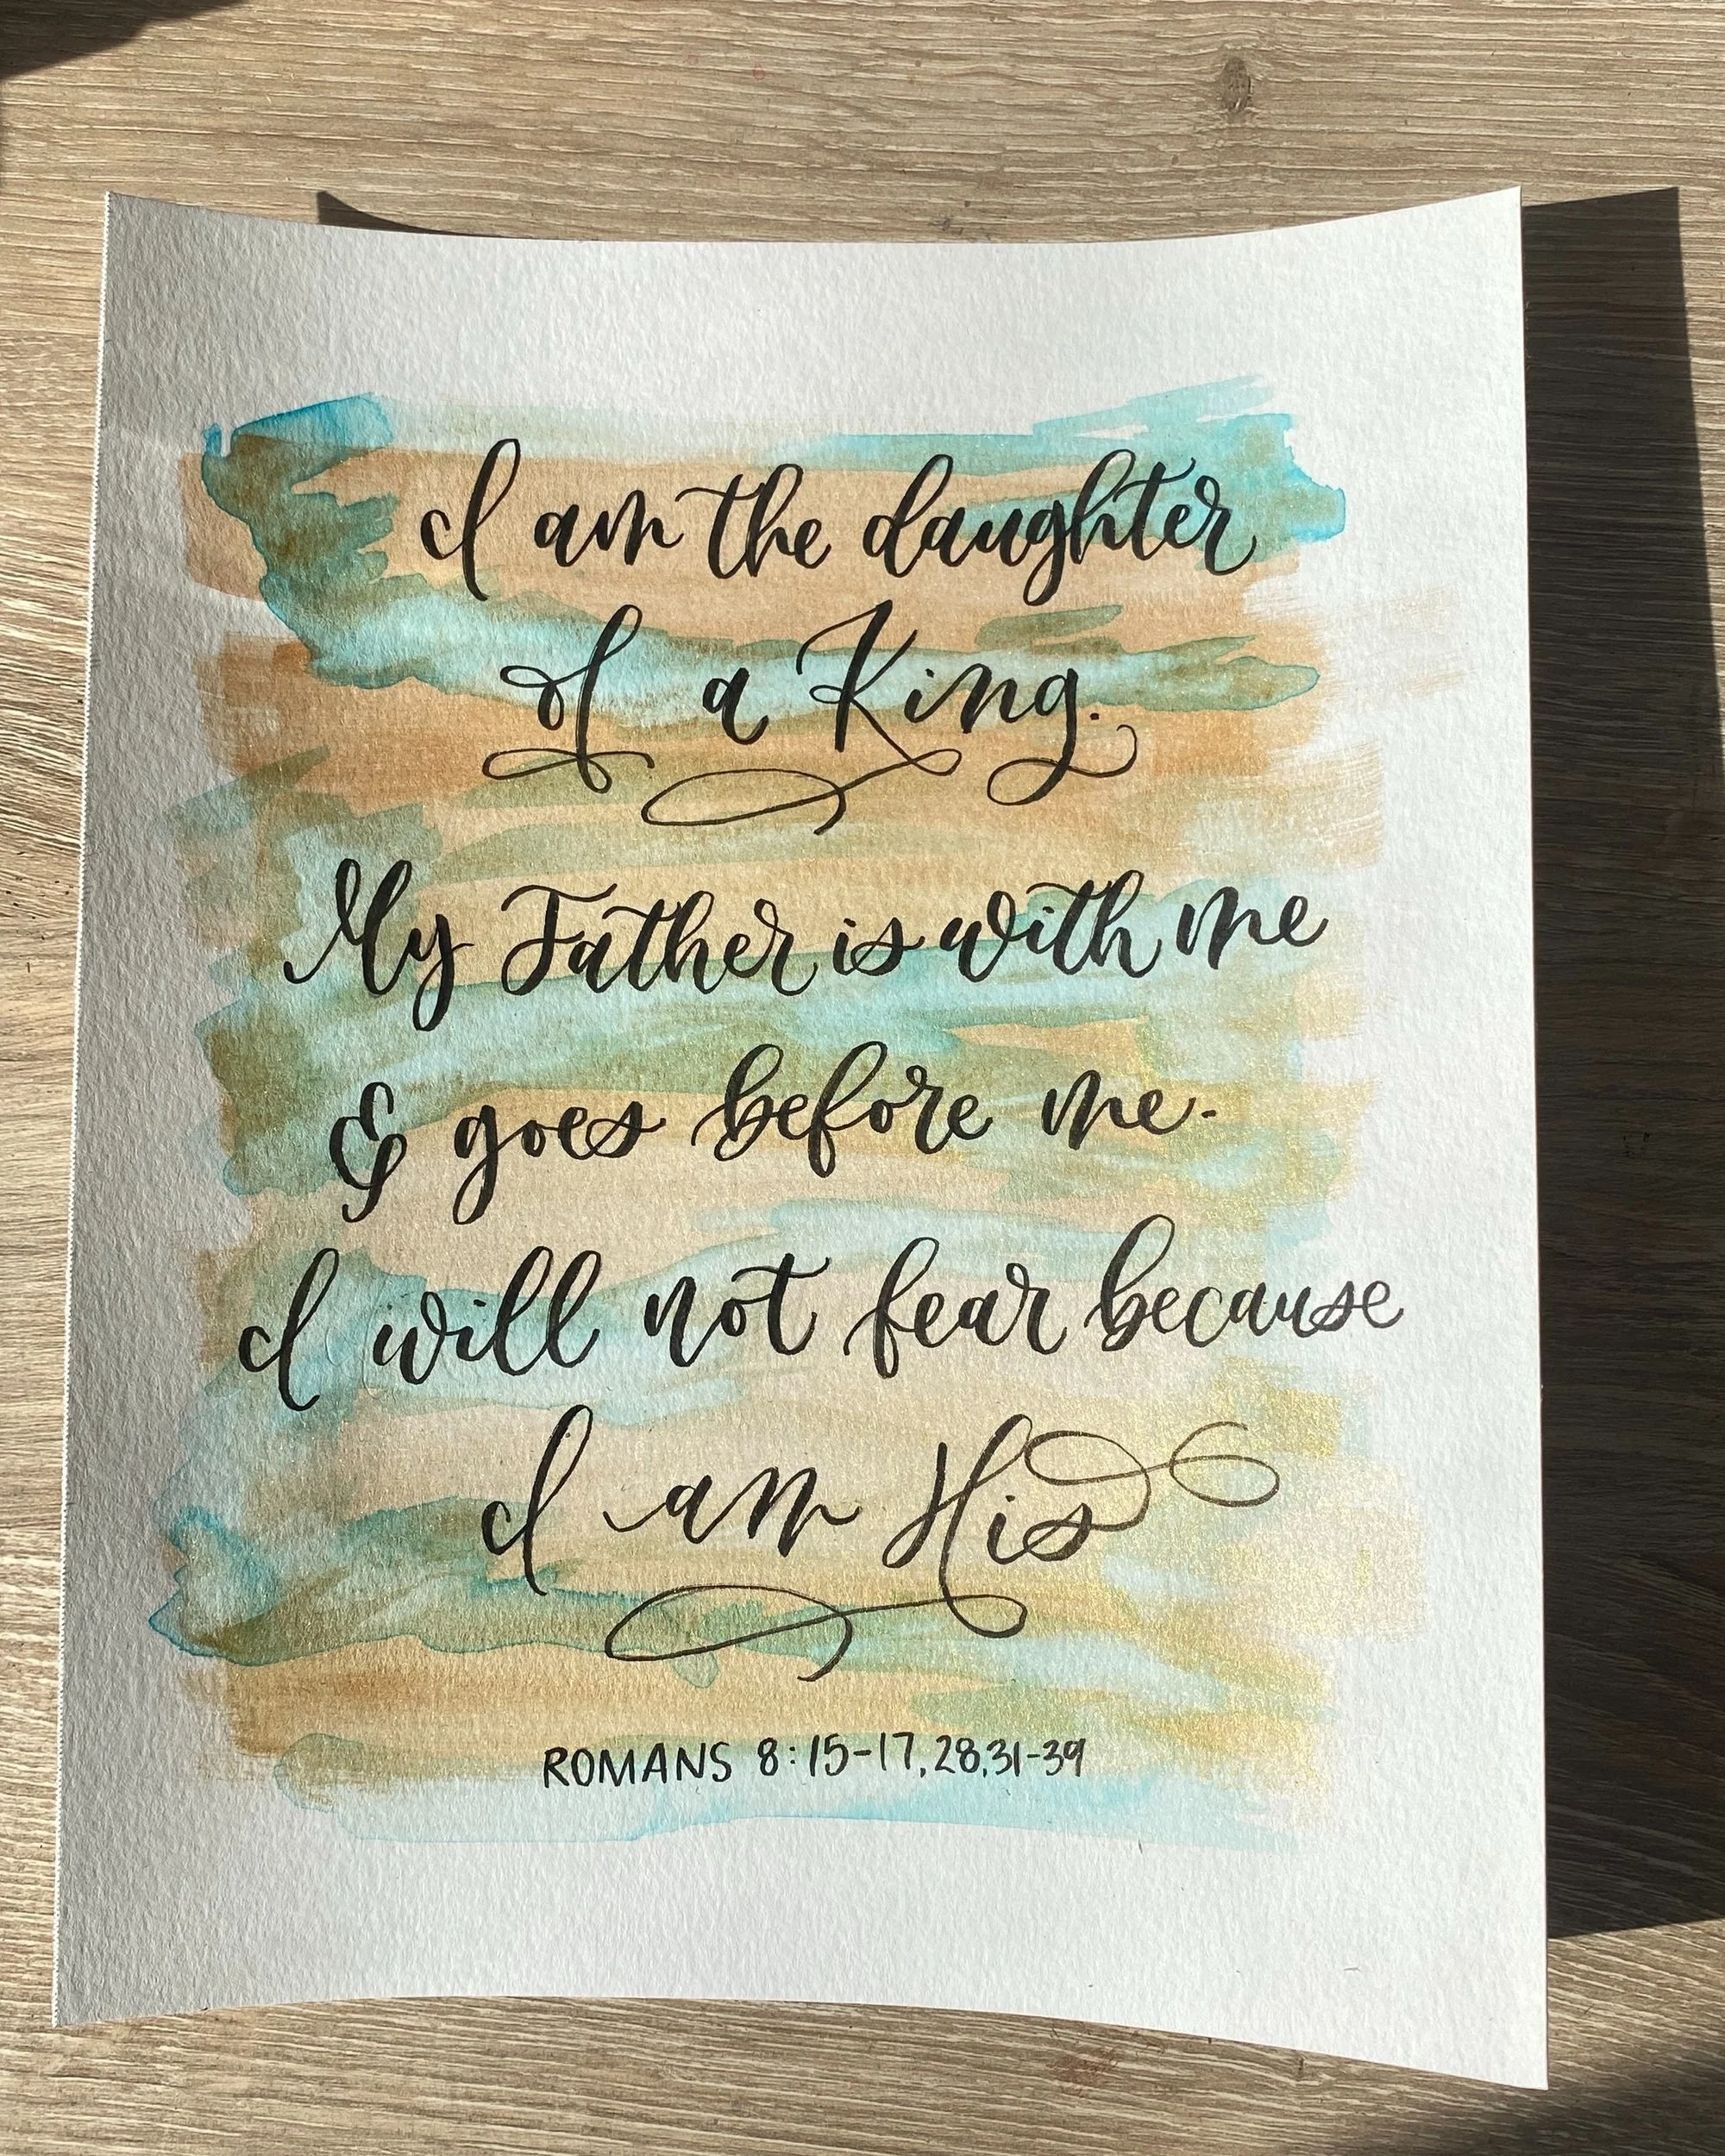 I am the daughter
of a King.
My Father is with me
& goes before me.
I will not fear because
I am His
ROMANS 8:15-17,28,31-39